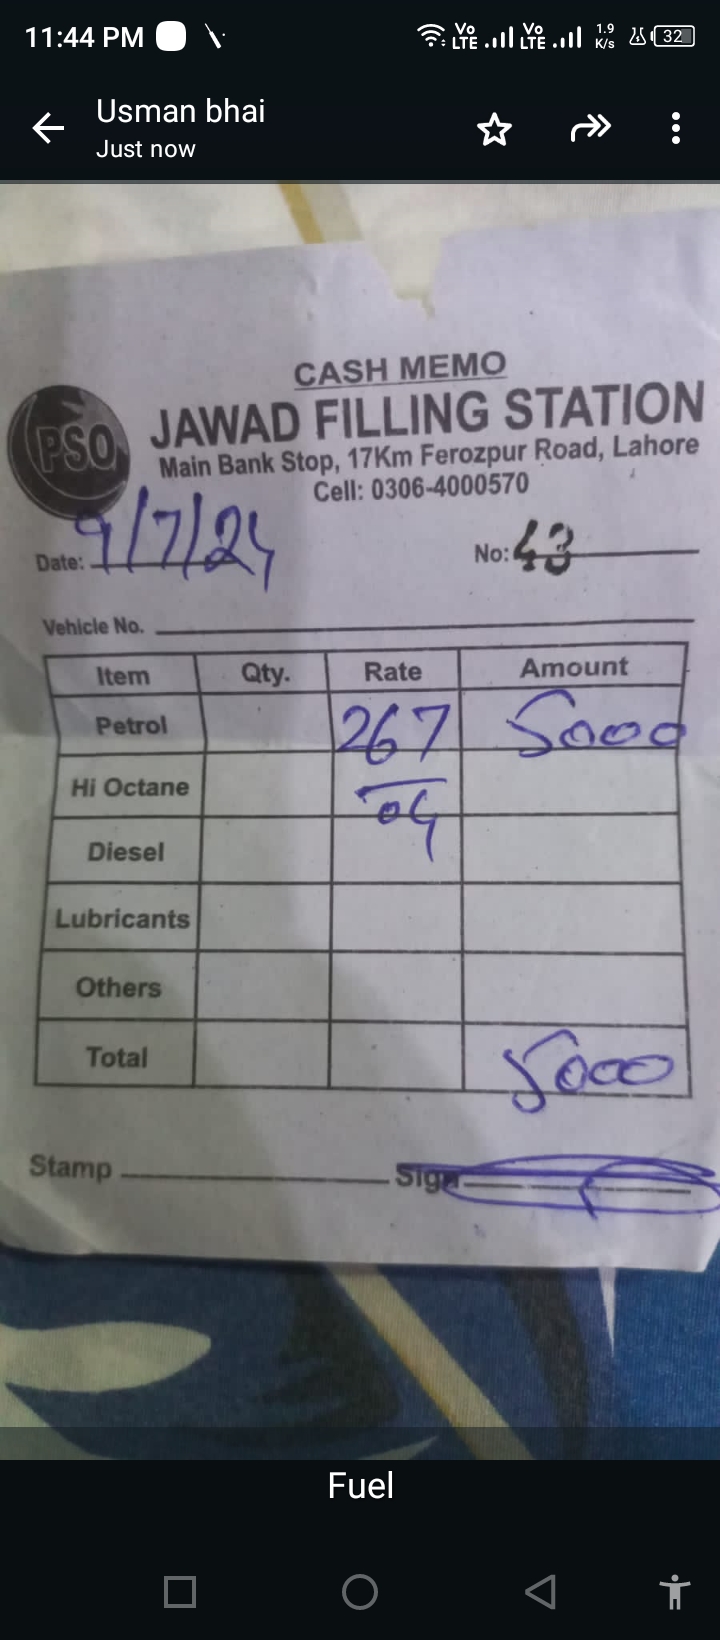 11:44 PM Vo LTE Vo LTE 1.9 K/s 32
Usman bhai
Just now
CASH MEMO
PSO
JAWAD FILLING STATION
Main Bank Stop, 17Km Ferozpur Road, Lahore
Cell: 0306-4000570
Date: 9/7/24 No: 43
Vehicle No.
Item Qty. Rate Amount
Petrol 267 5000
Hi Octane 04
Diesel
Lubricants
Others
Total 5000
Stamp Sign
Fuel